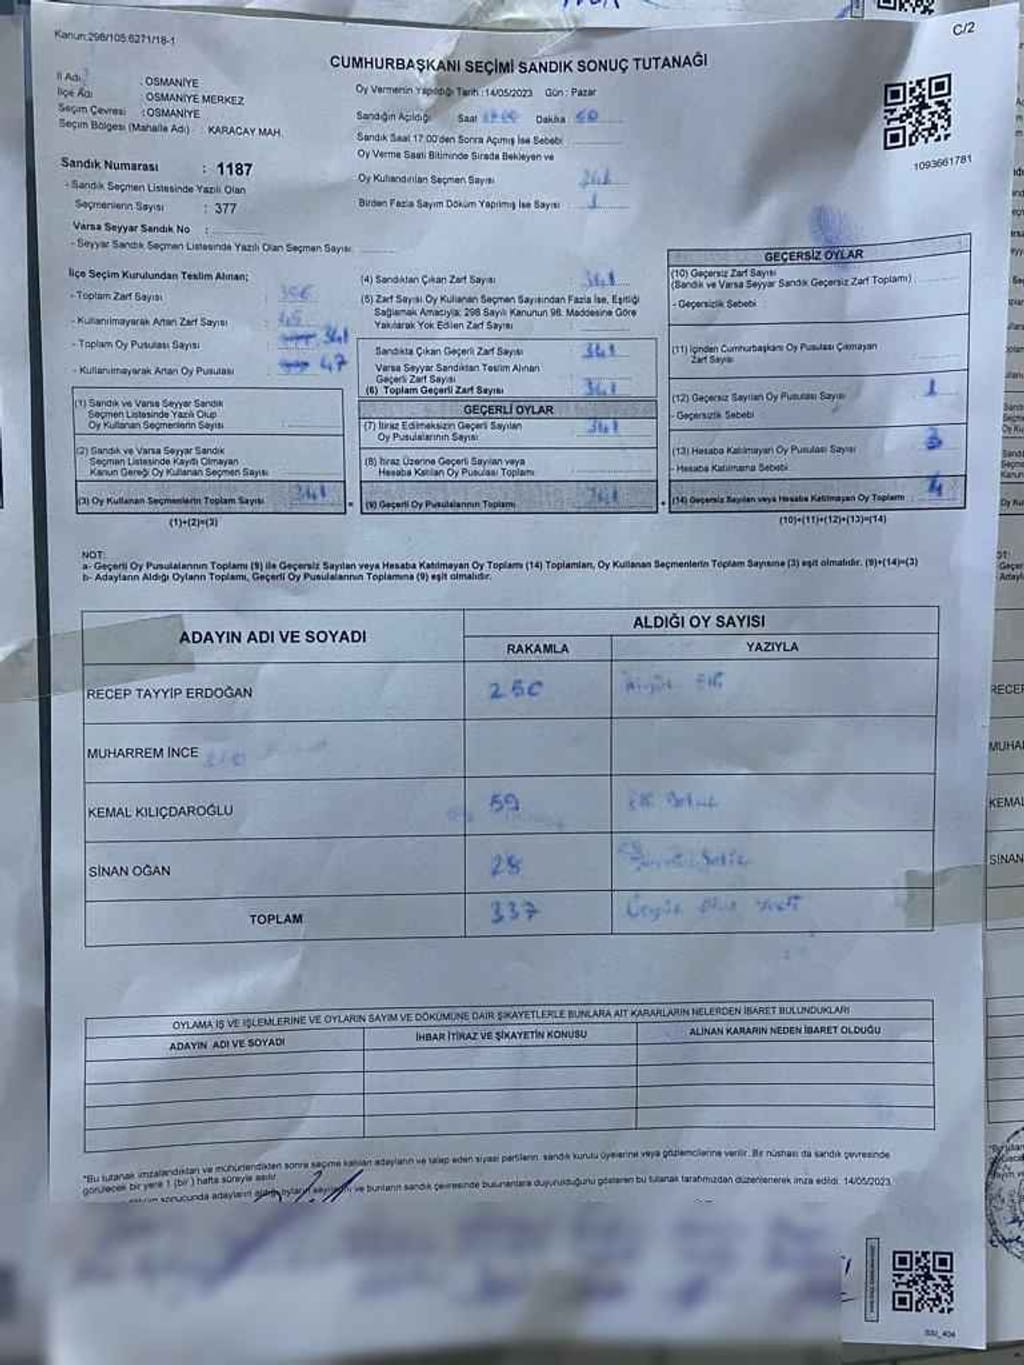 Kanun:298/105.6271/18-1
C/2
CUMHURBAŞKANI SEÇİMİ SANDIK SONUÇ TUTANAĞI
İl Adı : OSMANİYE
İlçe Adı : OSMANİYE MERKEZ
Seçim Çevresi : OSMANİYE
Seçim Bölgesi (Mahalle Adı) : KARACAY MAH.
Oy Vermenin Yapıldığı Tarih :14/05/2023 Gün : Pazar
Sandığın Açıldığı Saat Dakika
Sandık Saat 17:00'den Sonra Açılmış İse Sebebi
Oy Verme Saati Bitiminde Sırada Bekleyen ve
Oy Kullandırılan Seçmen Sayısı 341
Birden Fazla Sayım Döküm Yapılmış İse Sayısı 1
1093661781
Sandık Numarası : 1187
- Sandık Seçmen Listesinde Yazılı Olan
Seçmenlerin Sayısı : 377
Varsa Seyyar Sandık No :
- Seyyar Sandık Seçmen Listesinde Yazılı Olan Seçmen Sayısı
İlçe Seçim Kurulundan Teslim Alınan;
- Toplam Zarf Sayısı
- Kullanılmayarak Artan Zarf Sayısı : 45
- Toplam Oy Pusulası Sayısı 341
- Kullanılmayarak Artan Oy Pusulası 47
(1) Sandık ve Varsa Seyyar Sandık
Seçmen Listesinde Yazılı Olup
Oy Kullanan Seçmenlerin Sayısı
(2) Sandık ve Varsa Seyyar Sandık
Seçmen Listesinde Kaydı Olmayan
Kanun Gereği Oy Kullanan Seçmen Sayısı
(3) Oy Kullanan Seçmenlerin Toplam Sayısı 341
(1)+(2)=(3)
(4) Sandıktan Çıkan Zarf Sayısı 341
(5) Zarf Sayısı Oy Kullanan Seçmen Sayısından Fazla İse, Eşitliği
Sağlamak Amacıyla; 298 Sayılı Kanunun 98. Maddesine Göre
Yakılarak Yok Edilen Zarf Sayısı
Sandıkta Çıkan Geçerli Zarf Sayısı 341
Varsa Seyyar Sandıktan Teslim Alınan
Geçerli Zarf Sayısı
(6) Toplam Geçerli Zarf Sayısı 341
GEÇERLİ OYLAR
(7) İtiraz Edilmeksizin Geçerli Sayılan
Oy Pusulalarının Sayısı 341
(8) İtiraz Üzerine Geçerli Sayılan veya
Hesaba Katılan Oy Pusulası Toplamı
(9) Geçerli Oy Pusulalarının Toplamı 341
GEÇERSİZ OYLAR
(10) Geçersiz Zarf Sayısı
(Sandık ve Varsa Seyyar Sandık Geçersiz Zarf Toplamı)
- Geçersizlik Sebebi
(11) İçinden Cumhurbaşkanı Oy Pusulası Çıkmayan
Zarf Sayısı
(12) Geçersiz Sayılan Oy Pusulası Sayısı 1
- Geçersizlik Sebebi
(13) Hesaba Katılmayan Oy Pusulası Sayısı 3
- Hesaba Katılmama Sebebi
(14) Geçersiz Sayılan veya Hesaba Katılmayan Oy Toplamı 4
(10)+(11)+(12)+(13)=(14)
NOT:
a- Geçerli Oy Pusulalarının Toplamı (9) ile Geçersiz Sayılan veya Hesaba Katılmayan Oy Toplamı (14) Toplamları, Oy Kullanan Seçmenlerin Toplam Sayısına (3) eşit olmalıdır. (9)+(14)=(3)
b- Adayların Aldığı Oyların Toplamı, Geçerli Oy Pusulalarının Toplamına (9) eşit olmalıdır.
ADAYIN ADI VE SOYADI
ALDIĞI OY SAYISI
RAKAMLA YAZIYLA
RECEP TAYYİP ERDOĞAN 250 İkiyüz Elli
MUHARREM İNCE
KEMAL KILIÇDAROĞLU 59 Elli Dokuz
SİNAN OĞAN 28 Sekiz
TOPLAM 337 Üçyüz Otuz Yedi
OYLAMA İŞ VE İŞLEMLERİNE VE OYLARIN SAYIM VE DÖKÜMÜNE DAİR ŞİKAYETLERLE BUNLARA AİT KARARLARIN NELERDEN İBARET BULUNDUKLARI
ADAYIN ADI VE SOYADI İHBAR İTİRAZ VE ŞİKAYETİN KONUSU ALINAN KARARIN NEDEN İBARET OLDUĞU
*Bu tutanak imzalandıktan ve mühürlendikten sonra seçime katılan adayların ve talep eden siyasi partilerin, sandık kurulu üyelerine veya gözlemcilerine verilir. Bir nüshası da sandık çevresinde
görülecek bir yere 1 (bir) hafta süreyle asılır.
sonucunda adayların aldığı oyların sayısını ve bunların sandık çevresinde bulunanlara duyurulduğunu gösteren bu tutanak tarafımızdan düzenlenerek imza edildi. 14/05/2023